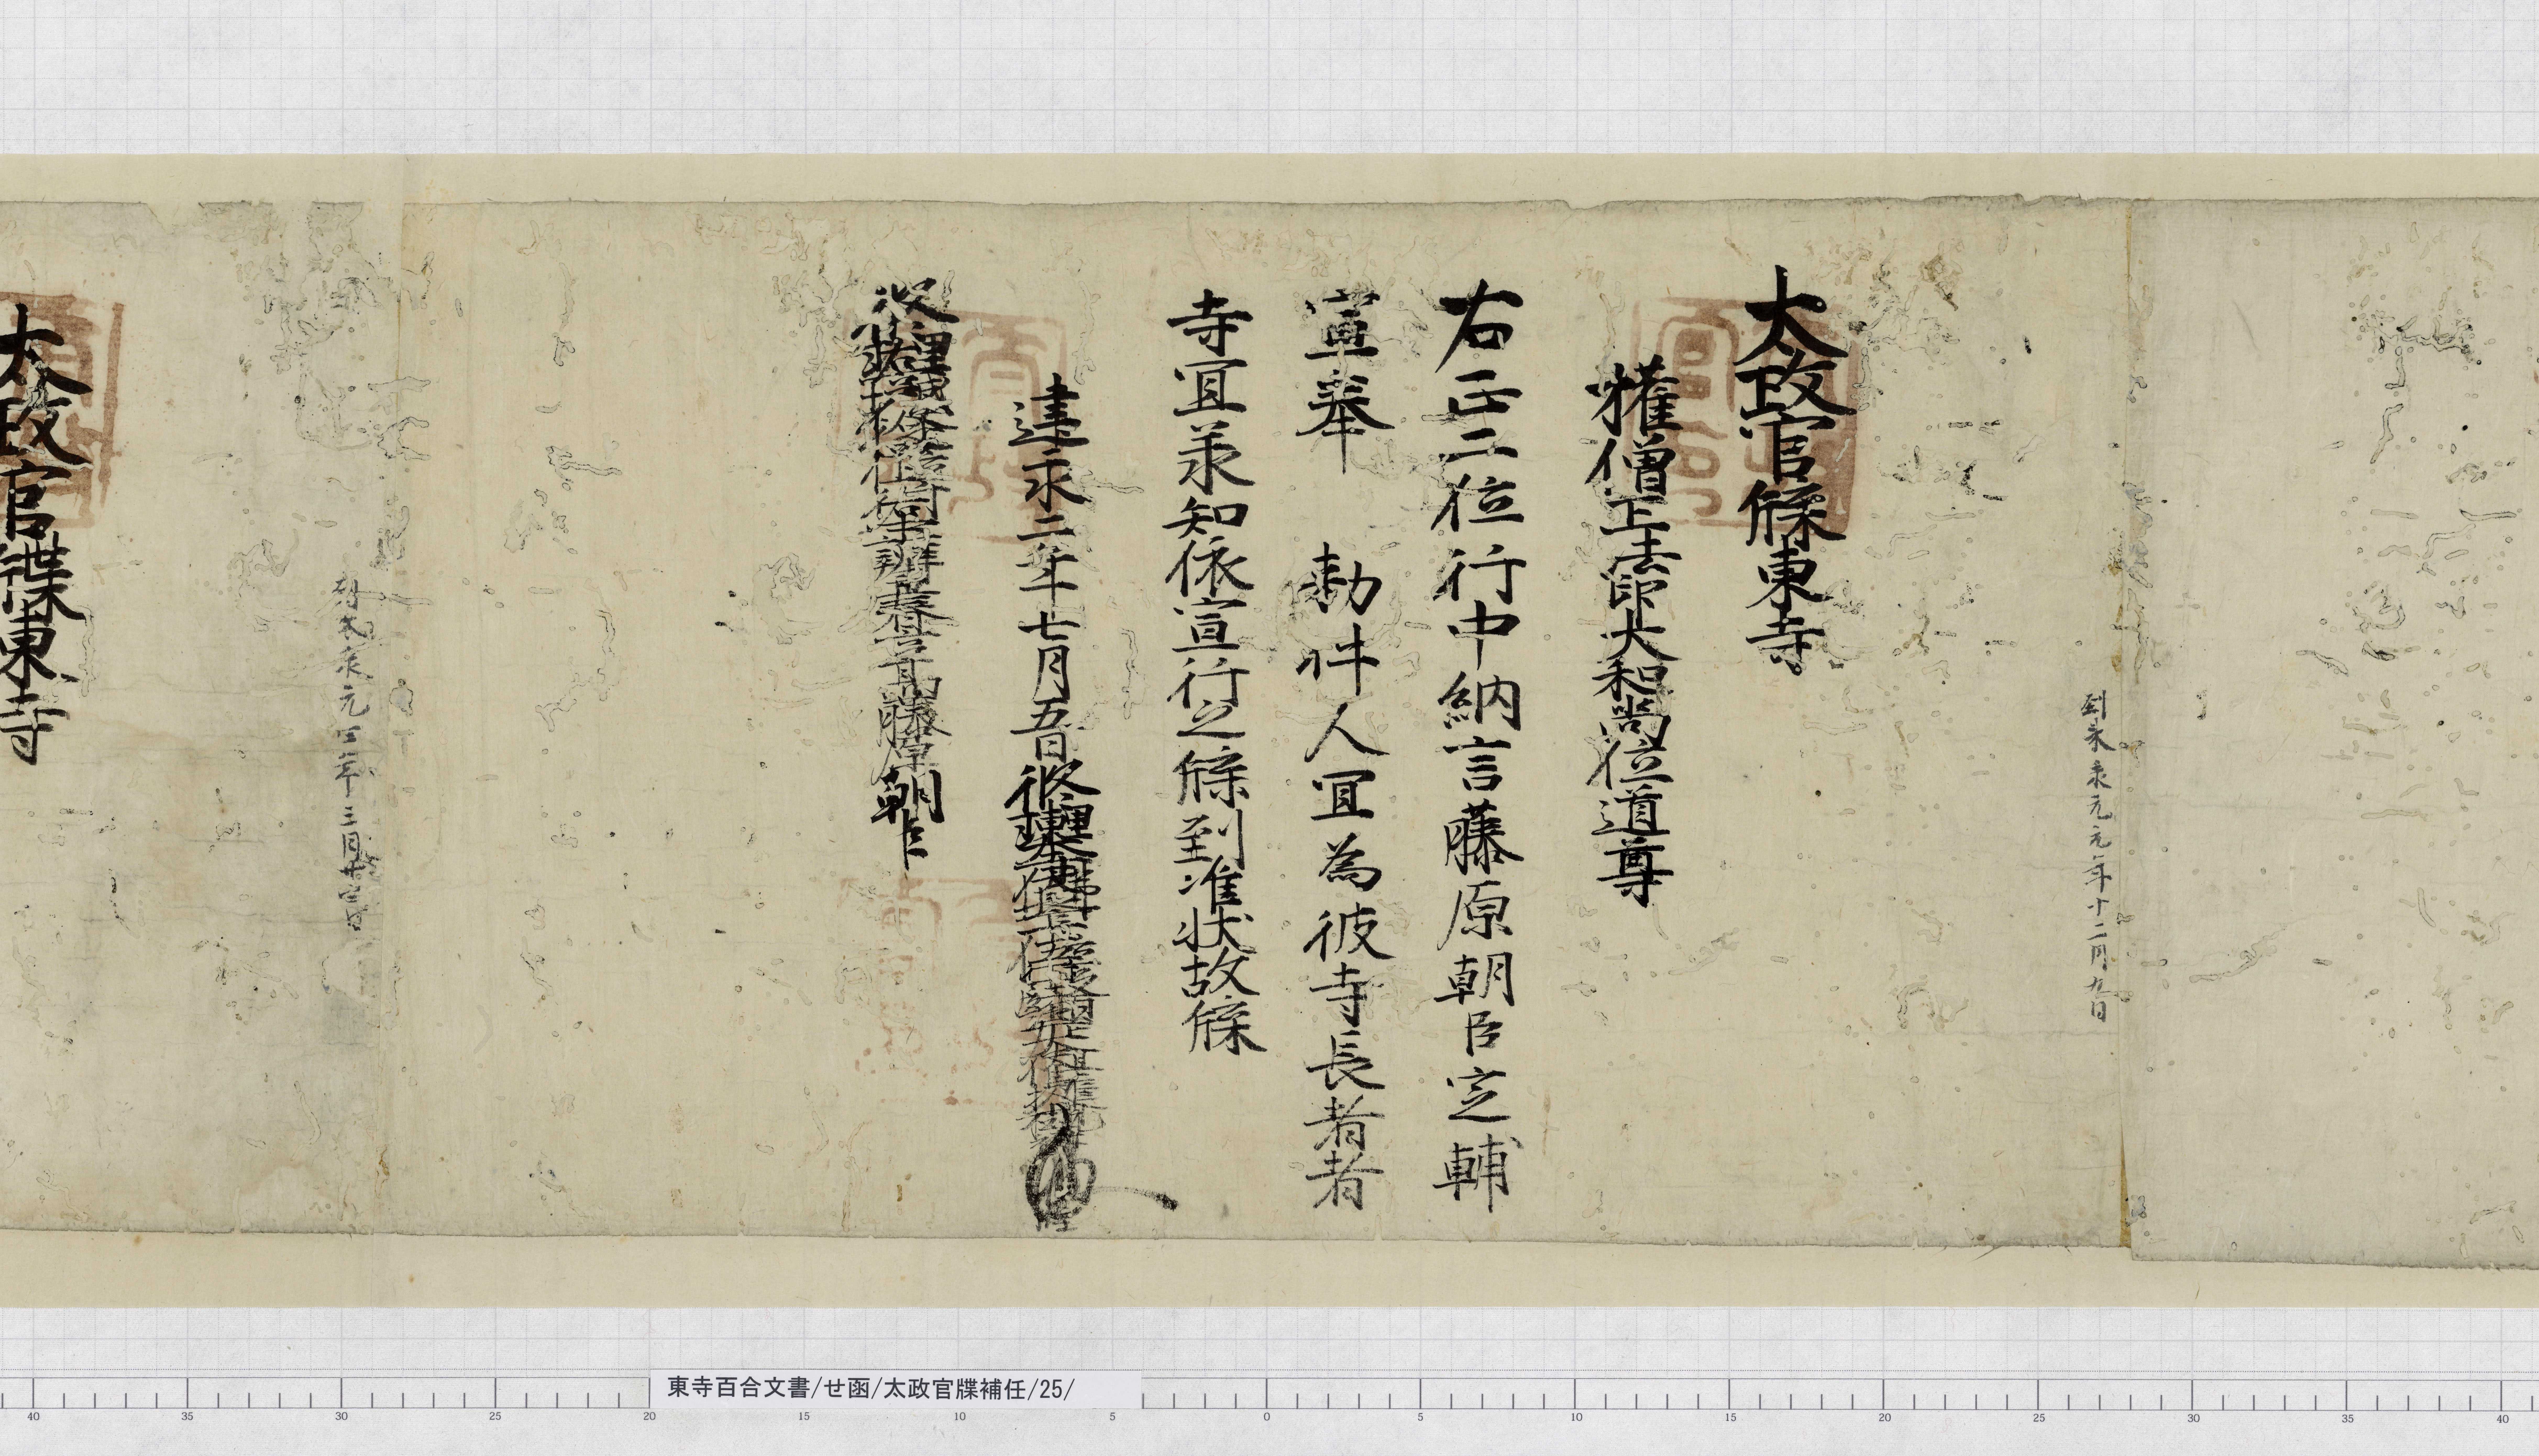 到来承元元年十二月九日
太政官牒東寺
権僧正法印大和尚位道尊
右正二位行中納言藤原朝臣定輔
宣奉　勅件人宜為彼寺長者者
寺宜承知依宣行之牒到准状故牒
建永二年七月五日修理東大寺大仏長官
藤原朝臣
到来承元四年三月
太政官牒東寺
東寺百合文書/せ函/太政官牒補任/25/
40 35 30 25 20 15 10 5 0 5 10 15 20 25 30 35 40